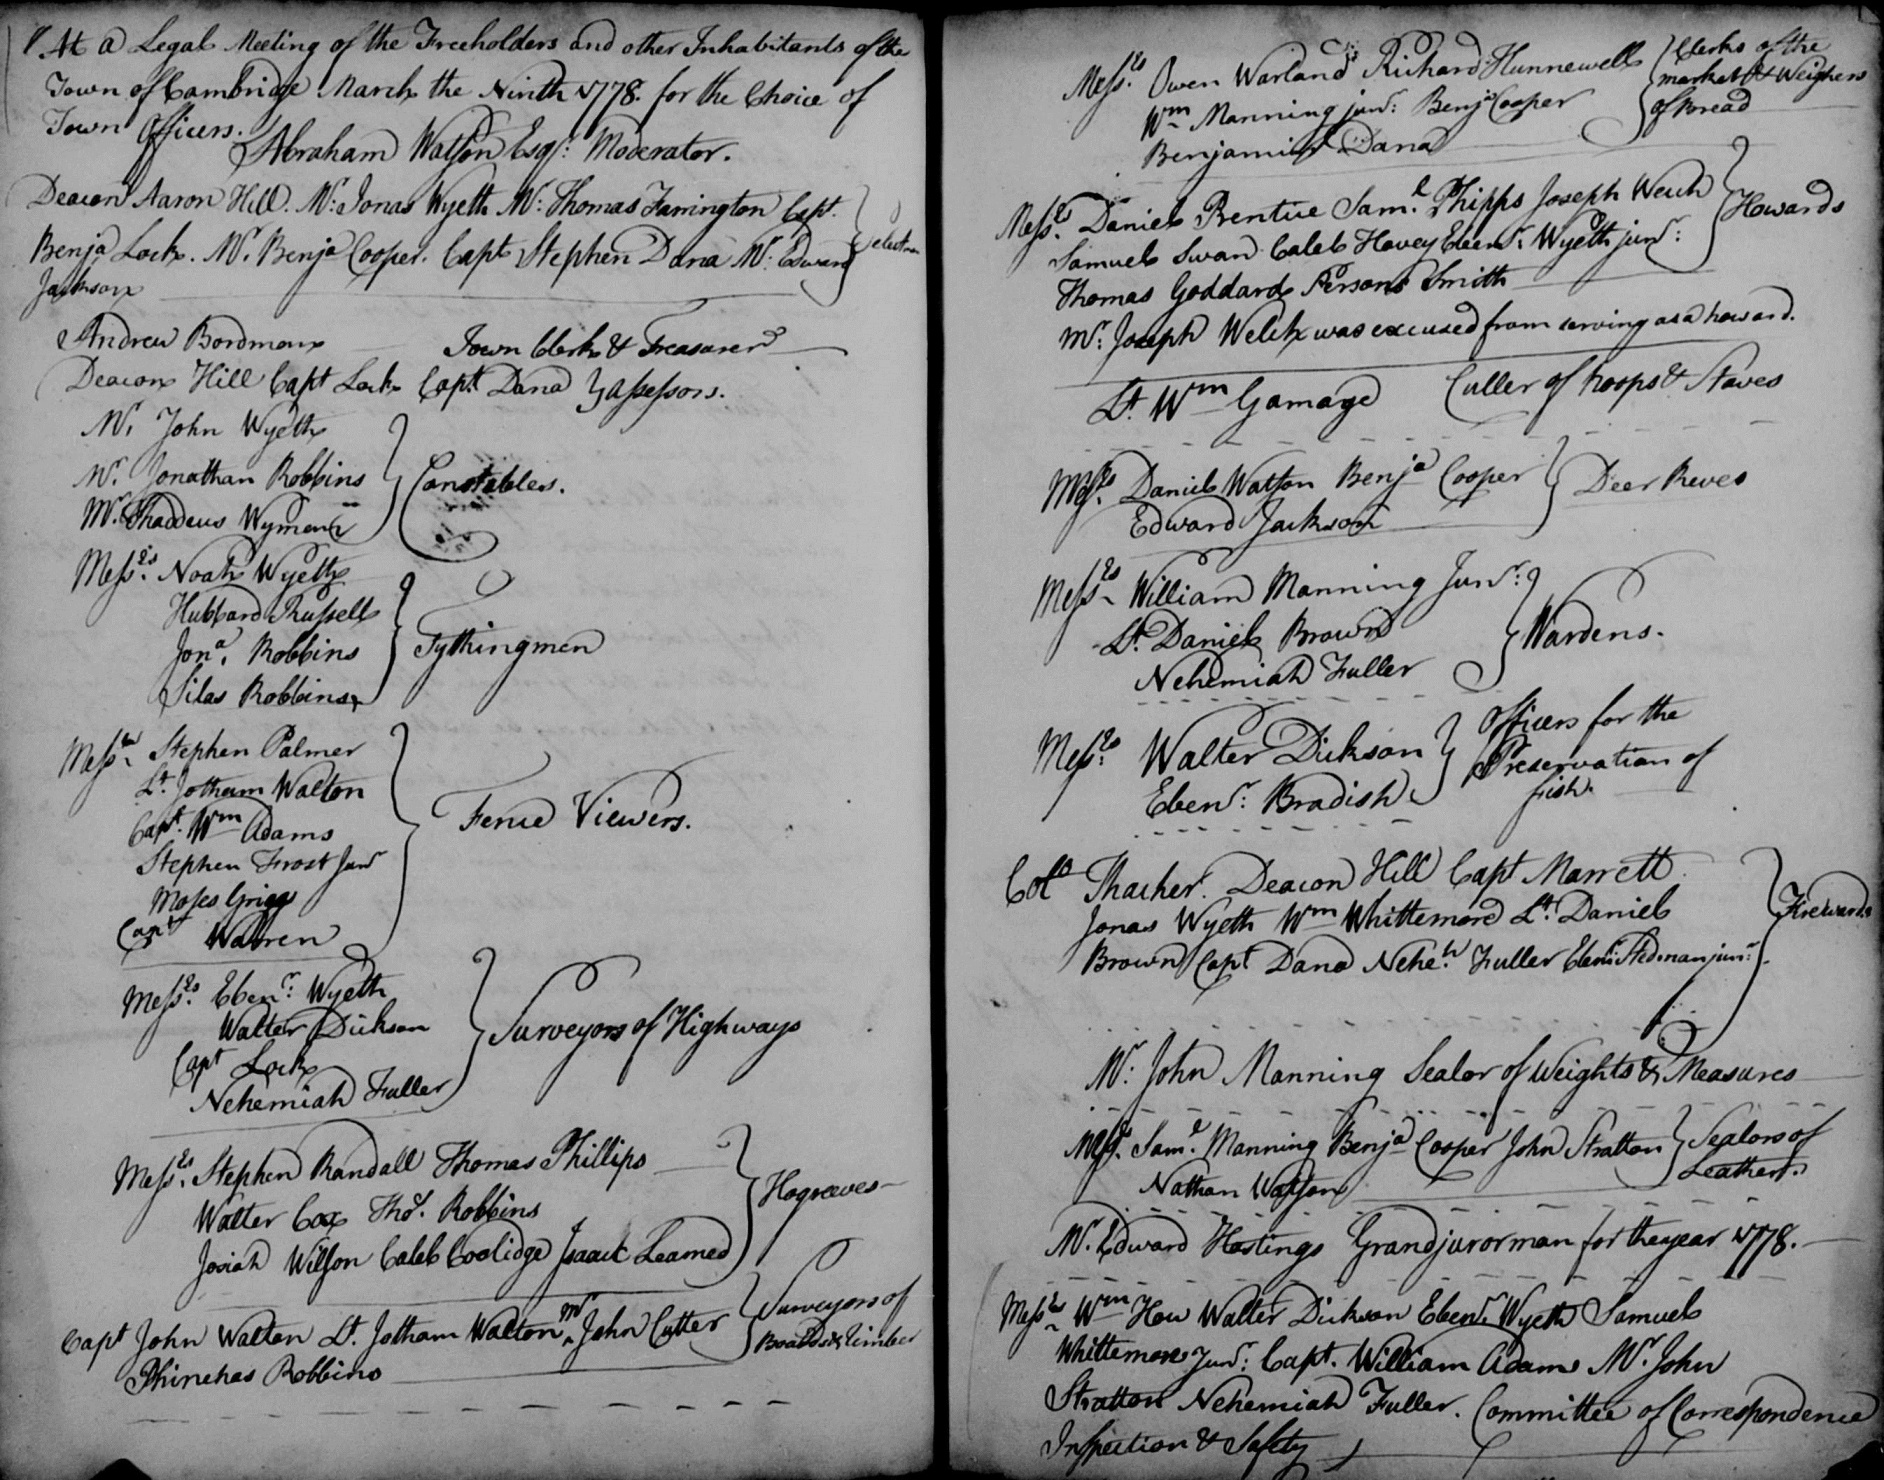 At a Legal Meeting of the Freeholders and other Inhabitants of the
Town of Cambridge March the Ninth 1778. for the Choice of
Town Officers.
Abraham Watson Esqr: Moderator.
Deacon Aaron Hill. Mr: Jonas Wyeth Mr: Thomas Farrington Capt.
Benja Lock. Mr. Benja Cooper. Capt Stephen Dana Mr. Edward
Jackson
Andrew Bordman Town Clerk & Treasurer
Deacon Hill Capt Lock Capt Dana } assessors.
Mr. John Wyeth
Mr. Jonathan Robbins } Constables.
Mr. Thaddeus Wyman
Messrs. Noah Wyeth
Hubbard Russell
Jona. Robbins } Tythingmen
Silas Robbins
Messrs. Stephen Palmer
Lt. Jotham Walton
Capt. Wm Adams } Fence Viewers.
Stephen Frost Junr
Moses Griggs
Capt Warren
Messrs. Ebenr: Wyeth
Walter Dickson } Surveyors of Highways
Capt Lock
Nehemiah Fuller
Messrs. Stephen Randall Thomas Phillips
Walter Cox Thos. Robbins } Hogreeves
Josiah Wilson Caleb Coolidge Isaack Learned
Capt John Walton Lt. Jotham Walton Mr John Cutter } Surveyors of
Phinehas Robbins Boards & Timber
Messrs. Owen Warland Richard Hunnewell } Clerks of the
Wm Manning junr: Benja Cooper market & Weighers
Benjamin Dana of Bread
Messrs. Daniel Prentice Saml. Phipps Joseph Welch } Howards
Samuel Swan Caleb Hovey Ebenr. Wyeth junr:
Thomas Goddard Persons Smith
Mr: Joseph Welch was excused from serving as a howard.
Lt. Wm Gamage Culler of hoops & Staves
Messrs. Daniel Watson Benja Cooper } Deer Reves
Edward Jackson
Messrs William Manning Junr:
Lt. Daniel Brown } Wardens.
Nehemiah Fuller
Messrs: Walter Dickson } Officers for the
Ebenr: Bradish Preservation of
fish.
Colo Thacher. Deacon Hill Capt Marrett
Jonas Wyeth Wm Whittemore Lt. Daniel } Firewards
Brown Capt Dana Neheh. Fuller Ebenr Stedman junr:
Mr: John Manning Sealer of Weights & Measures
Messrs. Saml. Manning Benja Cooper John Stratton } Sealers of
Nathan Watson Leather.
Mr. Edward Hastings Grandjurorman for the year 1778.
Messrs Wm How Walter Dickson Ebenr. Wyeth Samuel
Whittemore Junr: Capt. William Adams Mr. John
Stratton Nehemiah Fuller. Committee of Correspondence
Inspection & Safety